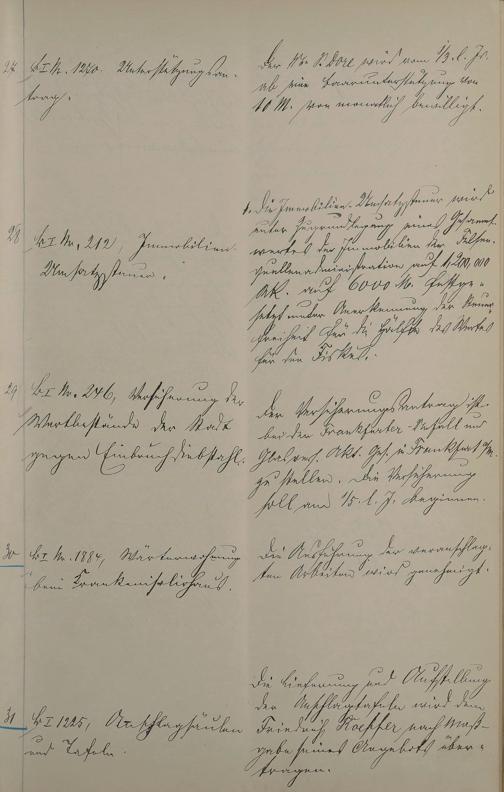 27 B I N. 1240. Unterstützungsan-
trag.
Der Ww. P. Dorl wird vom 1/3. l. Js.
ab eine Baarunterstützung von
10 M. monatlich bewilligt.
28 B I No. 212, Immobilien
Umsatzsteuer.
1. Die Immobilien-Umsatzsteuer wird
unter Zugrundlegung eines Gesammt-
wertes der Immobilien der Felsen-
quellenadministration auf 1,200,000
Mk. auf 6000 M. festge-
setzt unter Anerkennung der Steuer-
freiheit für die Hälfte des Wertes
für den Fiskus.
29 B I No. 246, Versicherung der
Wertbestände der Stadt
gegen Einbruchdiebstahl.
Der Versicherungsantrag ist
bei der Frankfurter Unfall und
Glasvers. Akt. Ges. in Frankfurt a/M.
zu stellen. Die Versicherung
soll am 1/5. l. J. beginnen.
30 B I No. 1884, Wärterwohnung
beim Krankenisolirhaus.
Die Ausführung der veranschlag-
ten Arbeiten wird genehmigt.
31 B I 1225, Anschlagsäulen
und Tafeln.
Die Lieferung und Aufstellung
der Anschlagtafeln wird dem
Friedrich nach Maß-
gabe seines Angebots über-
tragen.